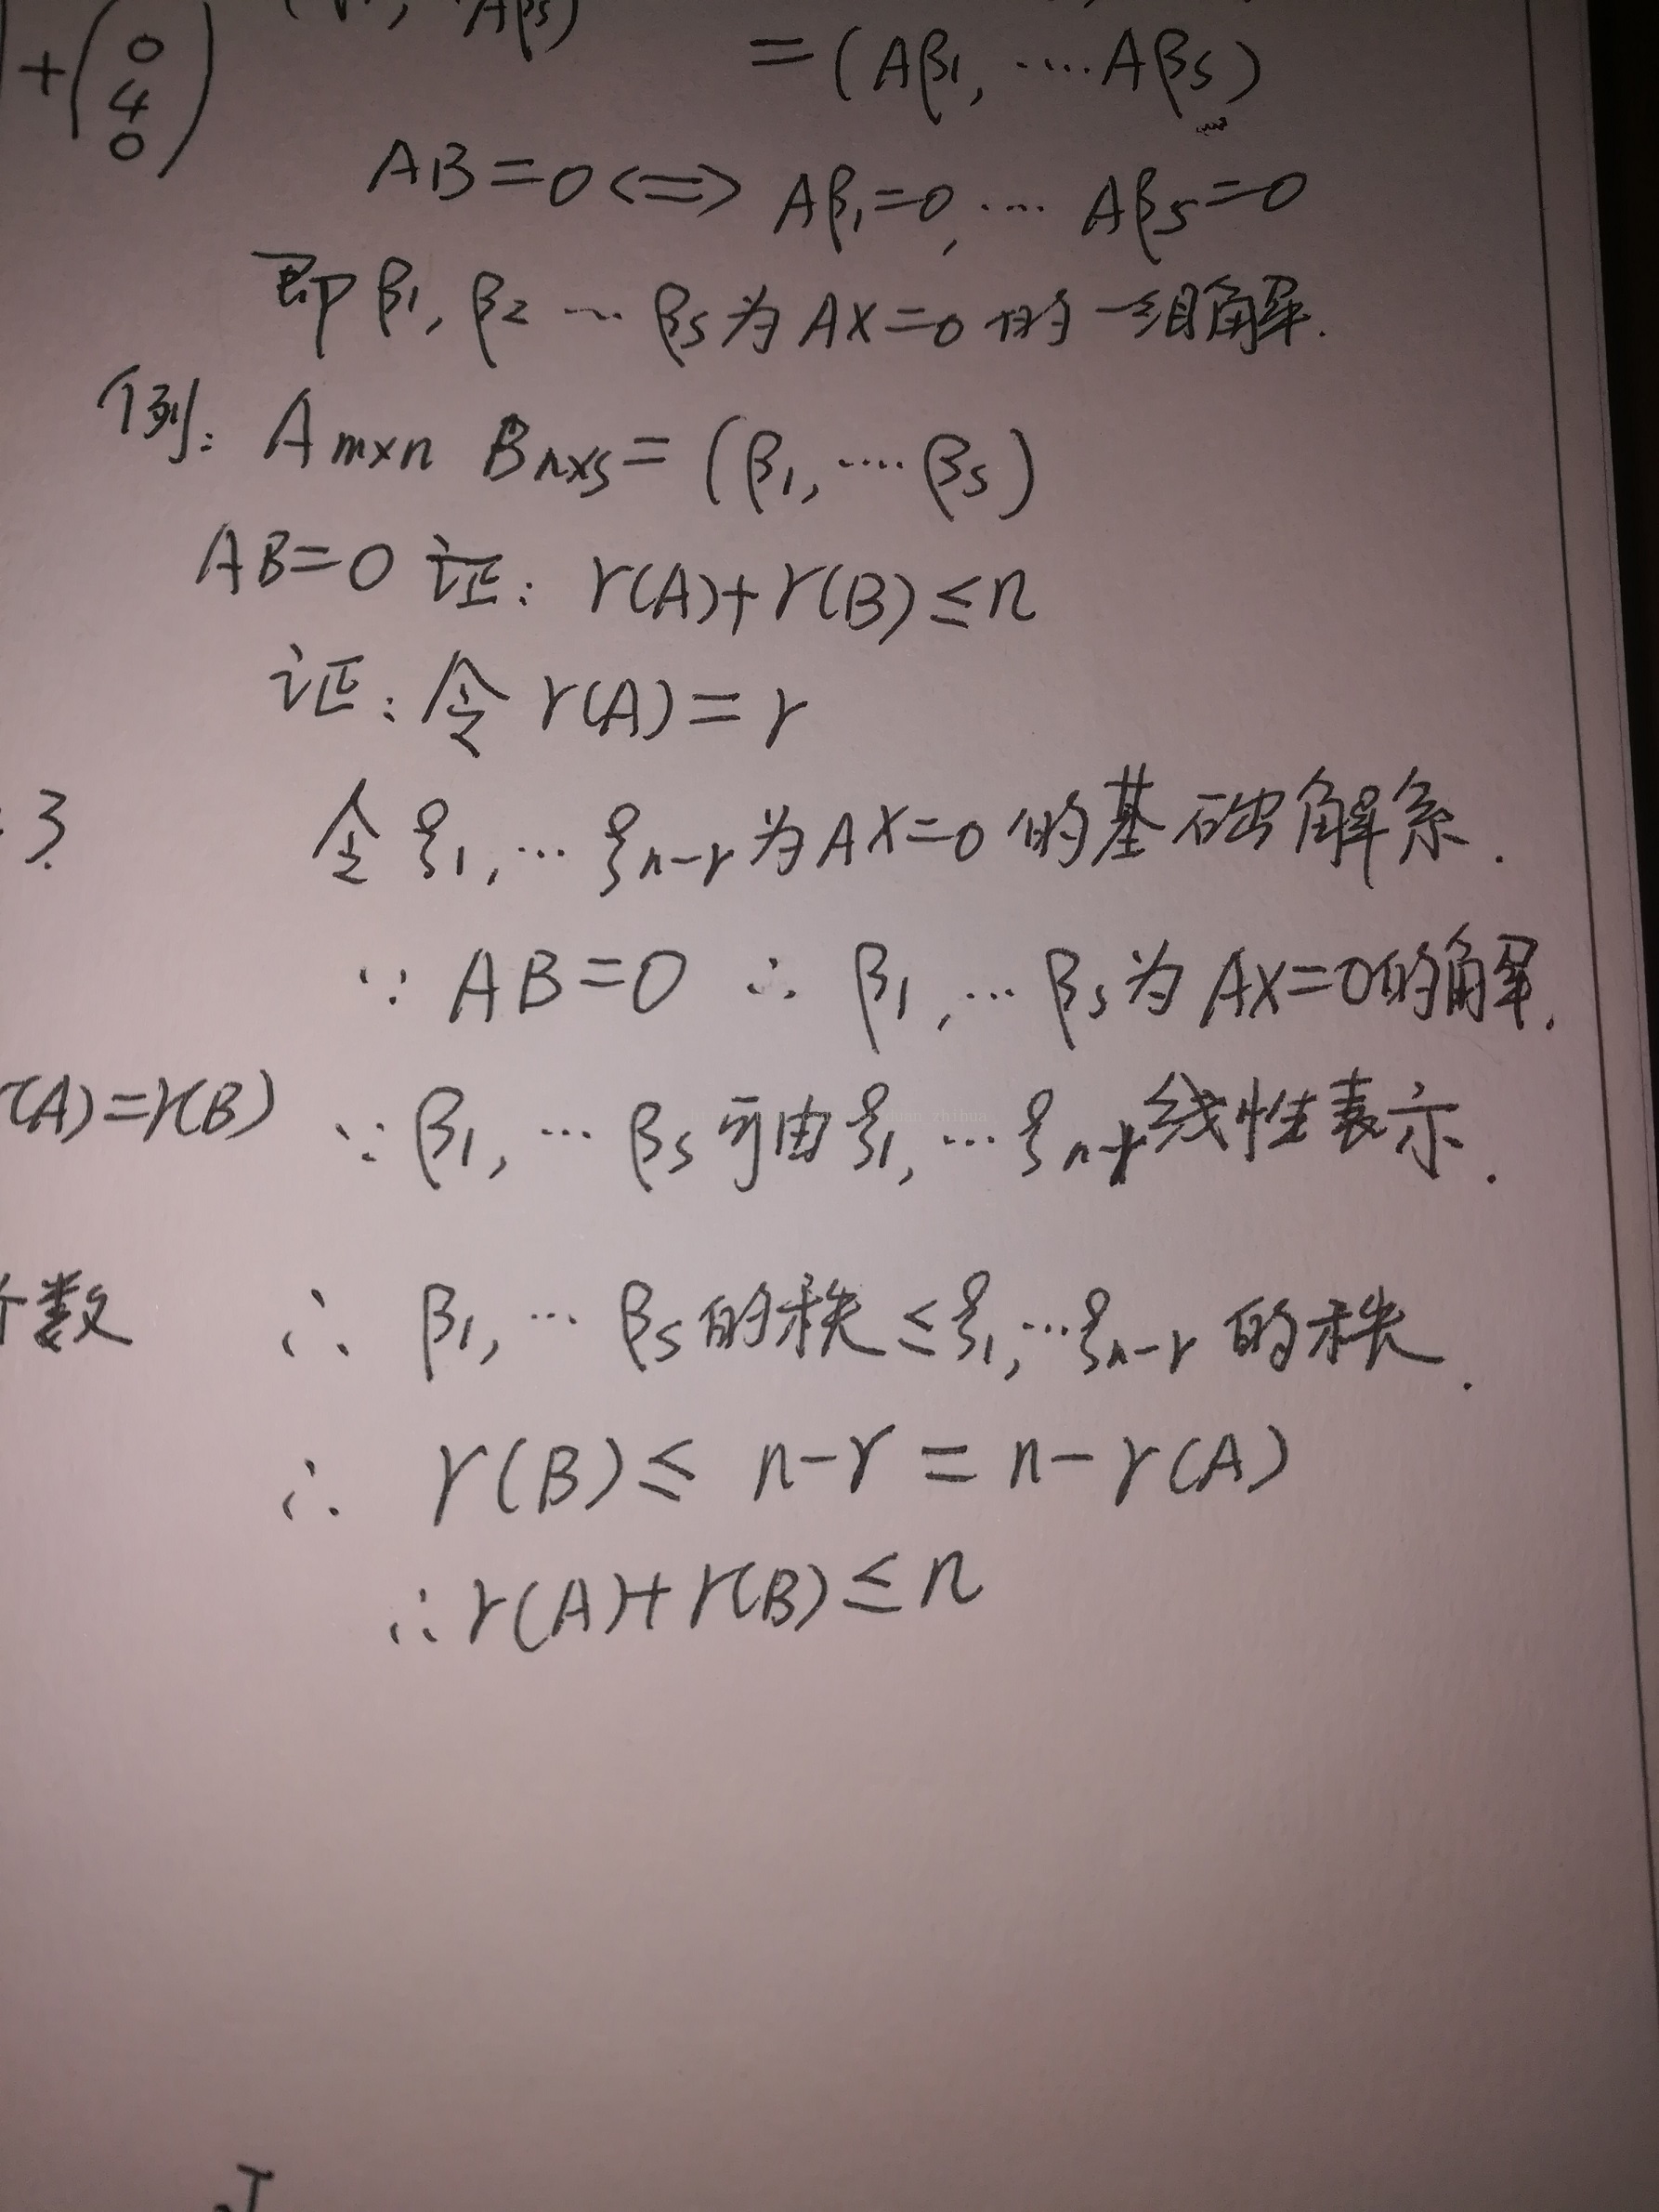 +(0 4 0) Aβs)
=(Aβ1, ····Aβs)
AB=0<=>Aβ1=0, ···· Aβs=0
即β1, β2 ··· βs为AX=0的一组解.
例: Am×n Bn×s=(β1, ····βs)
AB=0 证: r(A)+r(B)≤n
证: 令 r(A)=r
3. 令ξ1, ···ξn-r为AX=0的基础解系.
∵ AB=0 ∴ β1, ···βs为AX=0的解.
r(A)=r(B) ∵ β1, ··· βs可由ξ1, ···ξn-r线性表示.
个数 ∴ β1, ··· βs的秩≤ξ1, ···ξn-r的秩.
∴ r(B)≤ n-r = n-r(A)
∴r(A)+r(B)≤n